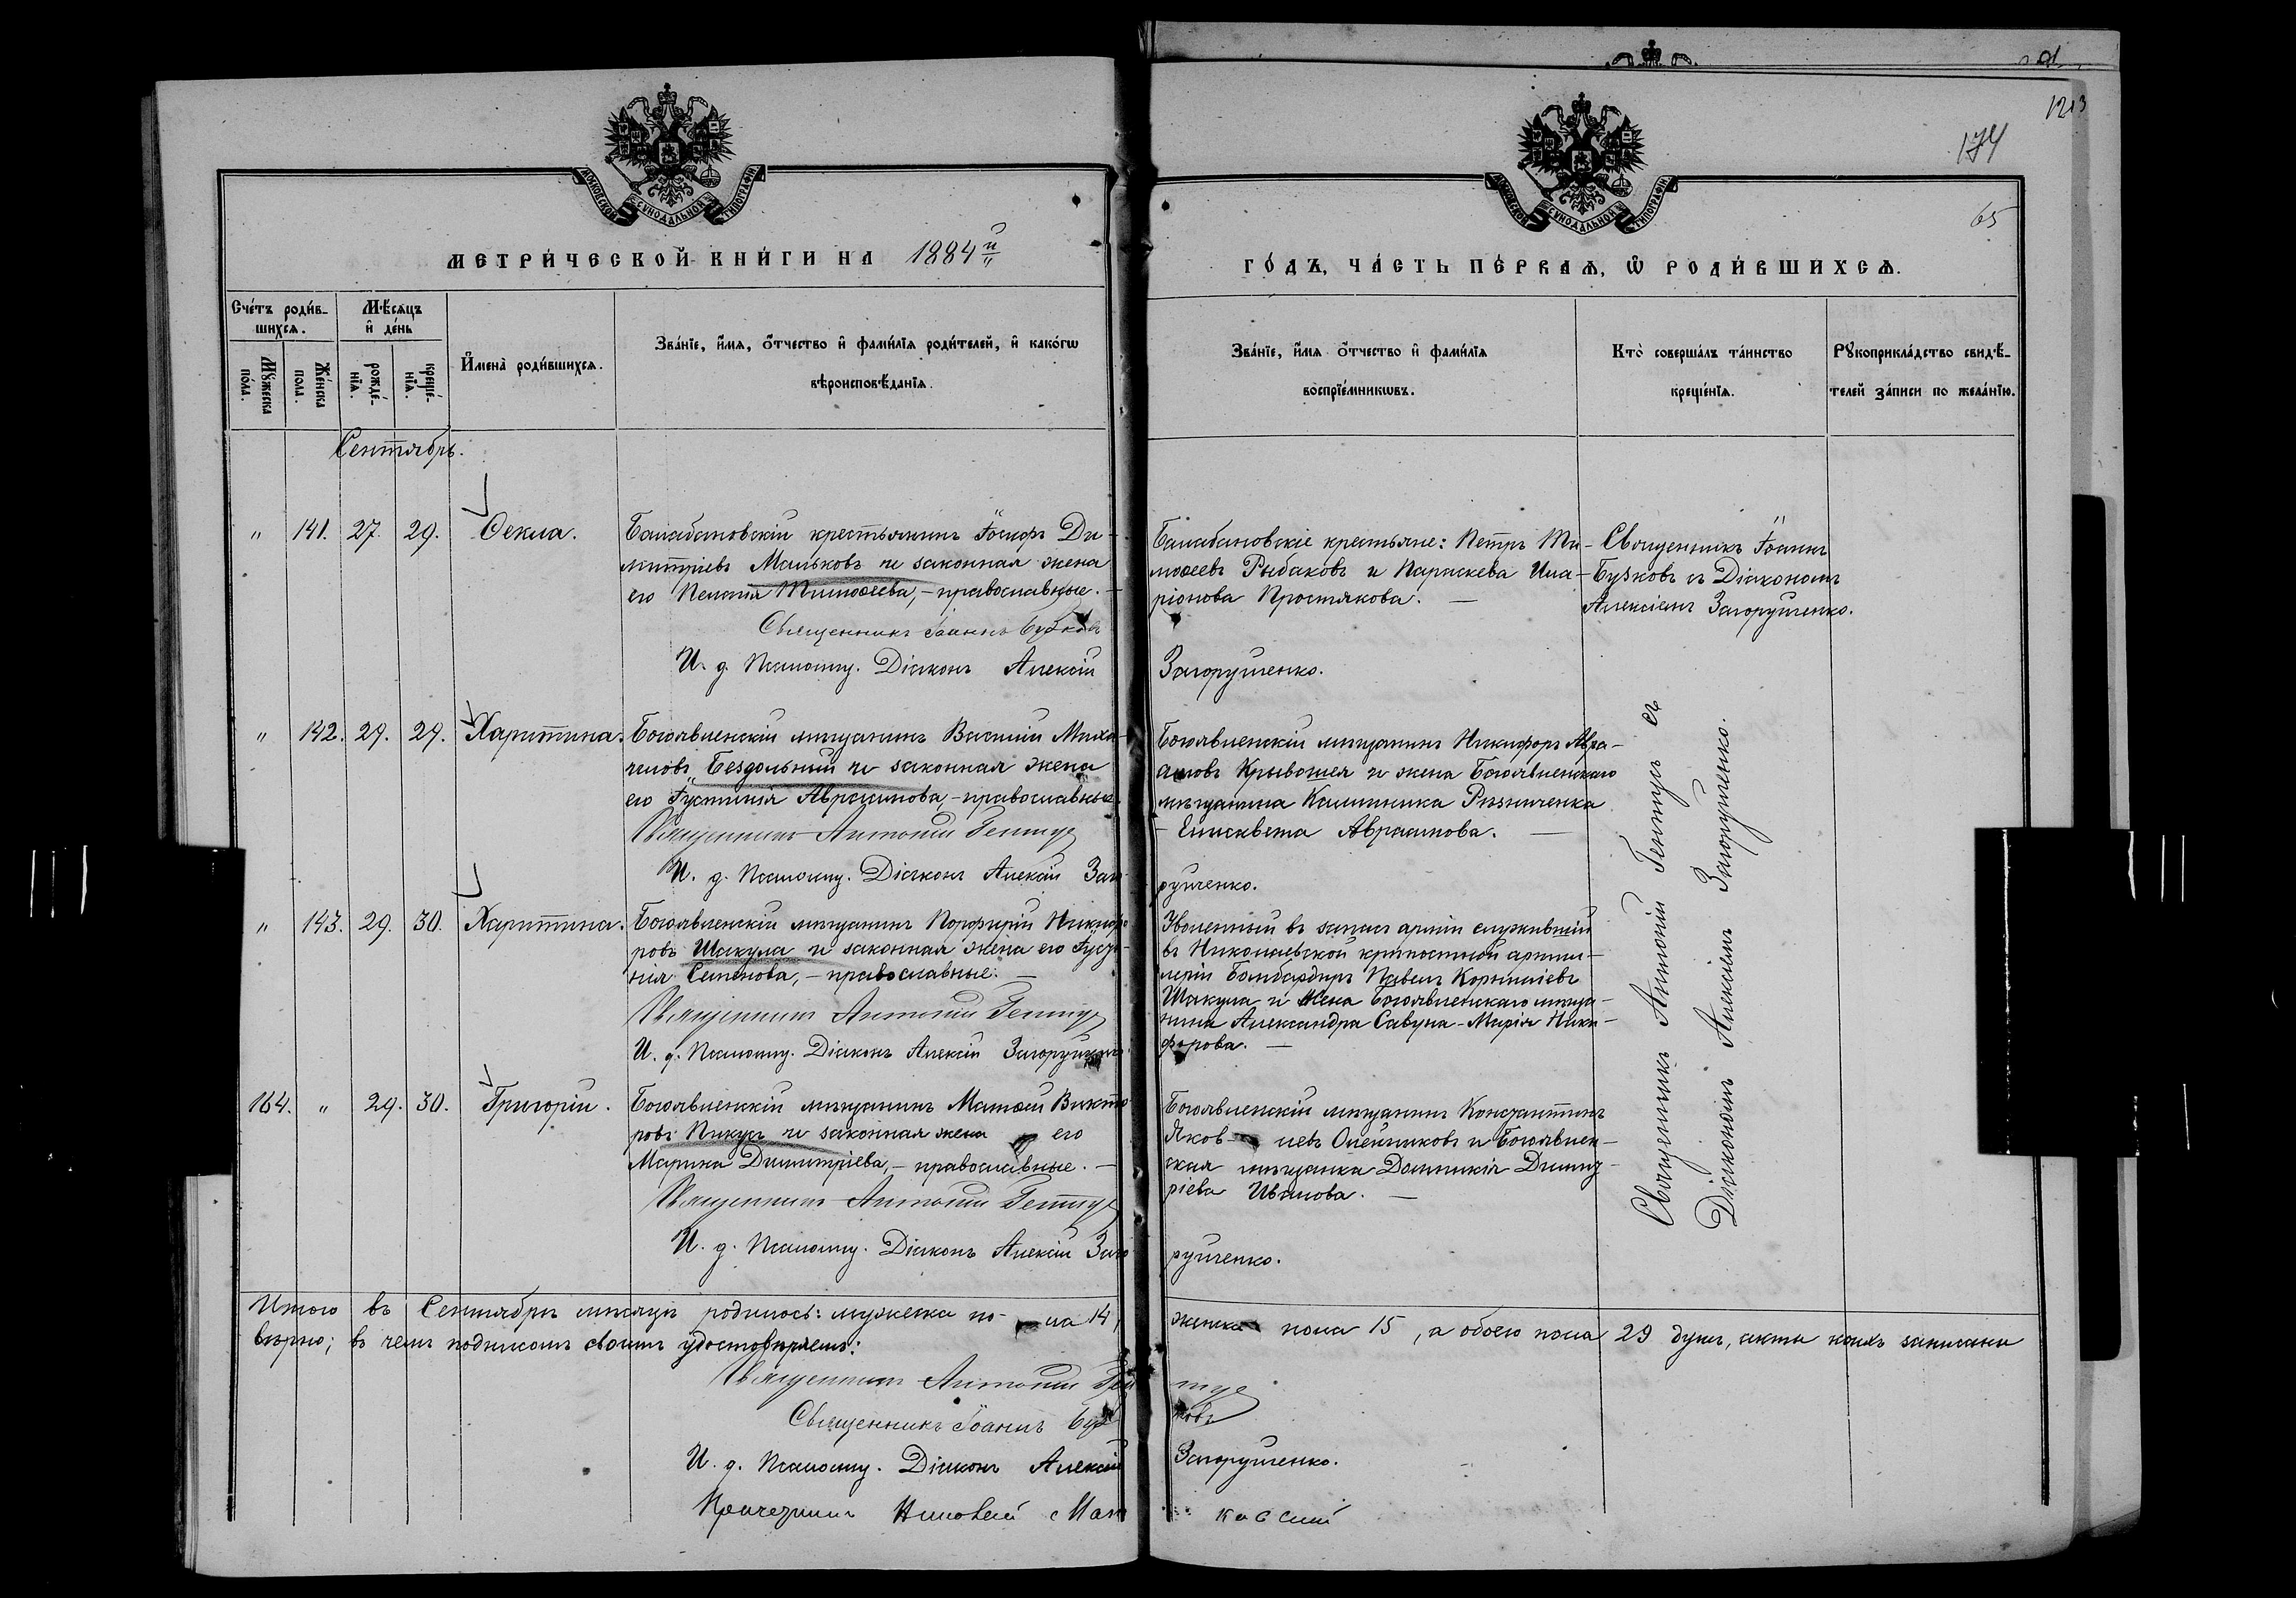 1213
174
65
МОСКОВСКОЙ СУНОДАЛЬНОЙ ТИПОГРАФІИ
МОСКОВСКОЙ СУНОДАЛЬНОЙ ТИПОГРАФІИ
МЕТРИ́ЧЕСКОЙ КНИ́ГИ НА 1884й
ГО́ДЪ, ЧА́СТЬ ПЕ́РВАѦ, Ѡ РОДИ́ВШИХСѦ.
Сче́тъ роди́в-
шихсѧ.
Мꙋ́жеска
по́ла.
Же́нска
пола.
Мѣ́сѧцъ
и҆ де́нь
рожде́-
нїѧ.
креще́-
нїѧ.
И҆мена̀ роди́вшихсѧ.
Зва́нїе, и҆́мѧ, ѻ҆́тчество и҆ фами́лїѧ роди́телей, и҆ како́гѡ
вѣроисповѣ́данїѧ.
Зва́нїе, и҆́мѧ ѻ҆́тчество и҆ фами́лїѧ
воспрїе́мникѡвъ.
Кто̀ соверша́лъ та́инство
креще́нїѧ.
Рꙋкоприкла́дство свидѣ́-
телей за́писи по жела́нїю.
Сентябрь.
" 141. 27. 29. Ѳекла.
Балабановскій крестьянинъ Іосифъ Ди-
митріевъ Мальковъ и законная жена
его Пелагія Тимоѳеева,-православные.-
Священникъ Іоаннъ Бузковъ
И. д. Псаломщ. Діаконъ Алексій
Балабановскіе крестьяне: Петръ Ти-
моѳеевъ Рыбаковъ и Параскева Ила-
ріонова Простякова. -
Загорушенко.
Священникъ Іоаннъ
Бузковъ съ Діакономъ
Алексіемъ Загорушенко.
" 142. 29. 29. Харитина.
Богоявленскій мѣщанинъ Василій Миха-
иловъ Бездольный и законная жена
его Іустинія Авраамова,-православные
Священникъ Антоній Гентуръ
И. д. Псаломщ. Діаконъ Алексій Заго-
Богоявленскій мѣщанинъ Никифоръ Авра-
амовъ Крывошея и жена Богоявленскаго
мѣщанина Каллиника Рѣзниченка
- Елисавета Авраамова. -
рушенко.
" 143. 29. 30. Харитина.
Богоявленскій мѣщанинъ Порфирій Никифо-
ровъ Шакула и законная жена его Іусти-
нія Семенова,-православные. -
Священникъ Антоній Гентуръ
И. д. Псаломщ. Діаконъ Алексій Загорушенко
Уволенный въ запасъ арміи служившій
въ Николаевской крѣпостной артил-
леріи Бомбардиръ Павелъ Корниліевъ
Шакула и жена Богоявленскаго мѣща-
нина Александра Савуна-Марія Ники-
форова. -
164. " 29. 30. Григорій.
Богоявленскій мѣщанинъ Матѳей Викто-
ровъ Пикусъ и законная жена его
Марина Димитріева,-православные. -
Священникъ Антоній Гентуръ
И. д. Псаломщ. Діаконъ Алексій Заго-
Богоявленскій мѣщанинъ Константинъ
Яков- левъ Олейниковъ и Богоявлен-
ская мѣщанка Домникія Димит-
ріева Иванова. -
рушенко.
Священникъ Антоній Гентуръ съ
Діакономъ Алексіемъ Загорушенко.
Итого въ Сентябрѣ мѣсяцѣ родилось: мужеска по- ла 14, женска пола 15, а обоего пола 29 душъ, акты коихъ записаны
вѣрно; въ чемъ подписомъ своимъ удостовѣряемъ:
Священникъ Антоній Гентуръ
Священникъ Іоаннъ Бузковъ
И. д. Псаломщ. Діаконъ Алексій Загорушенко.